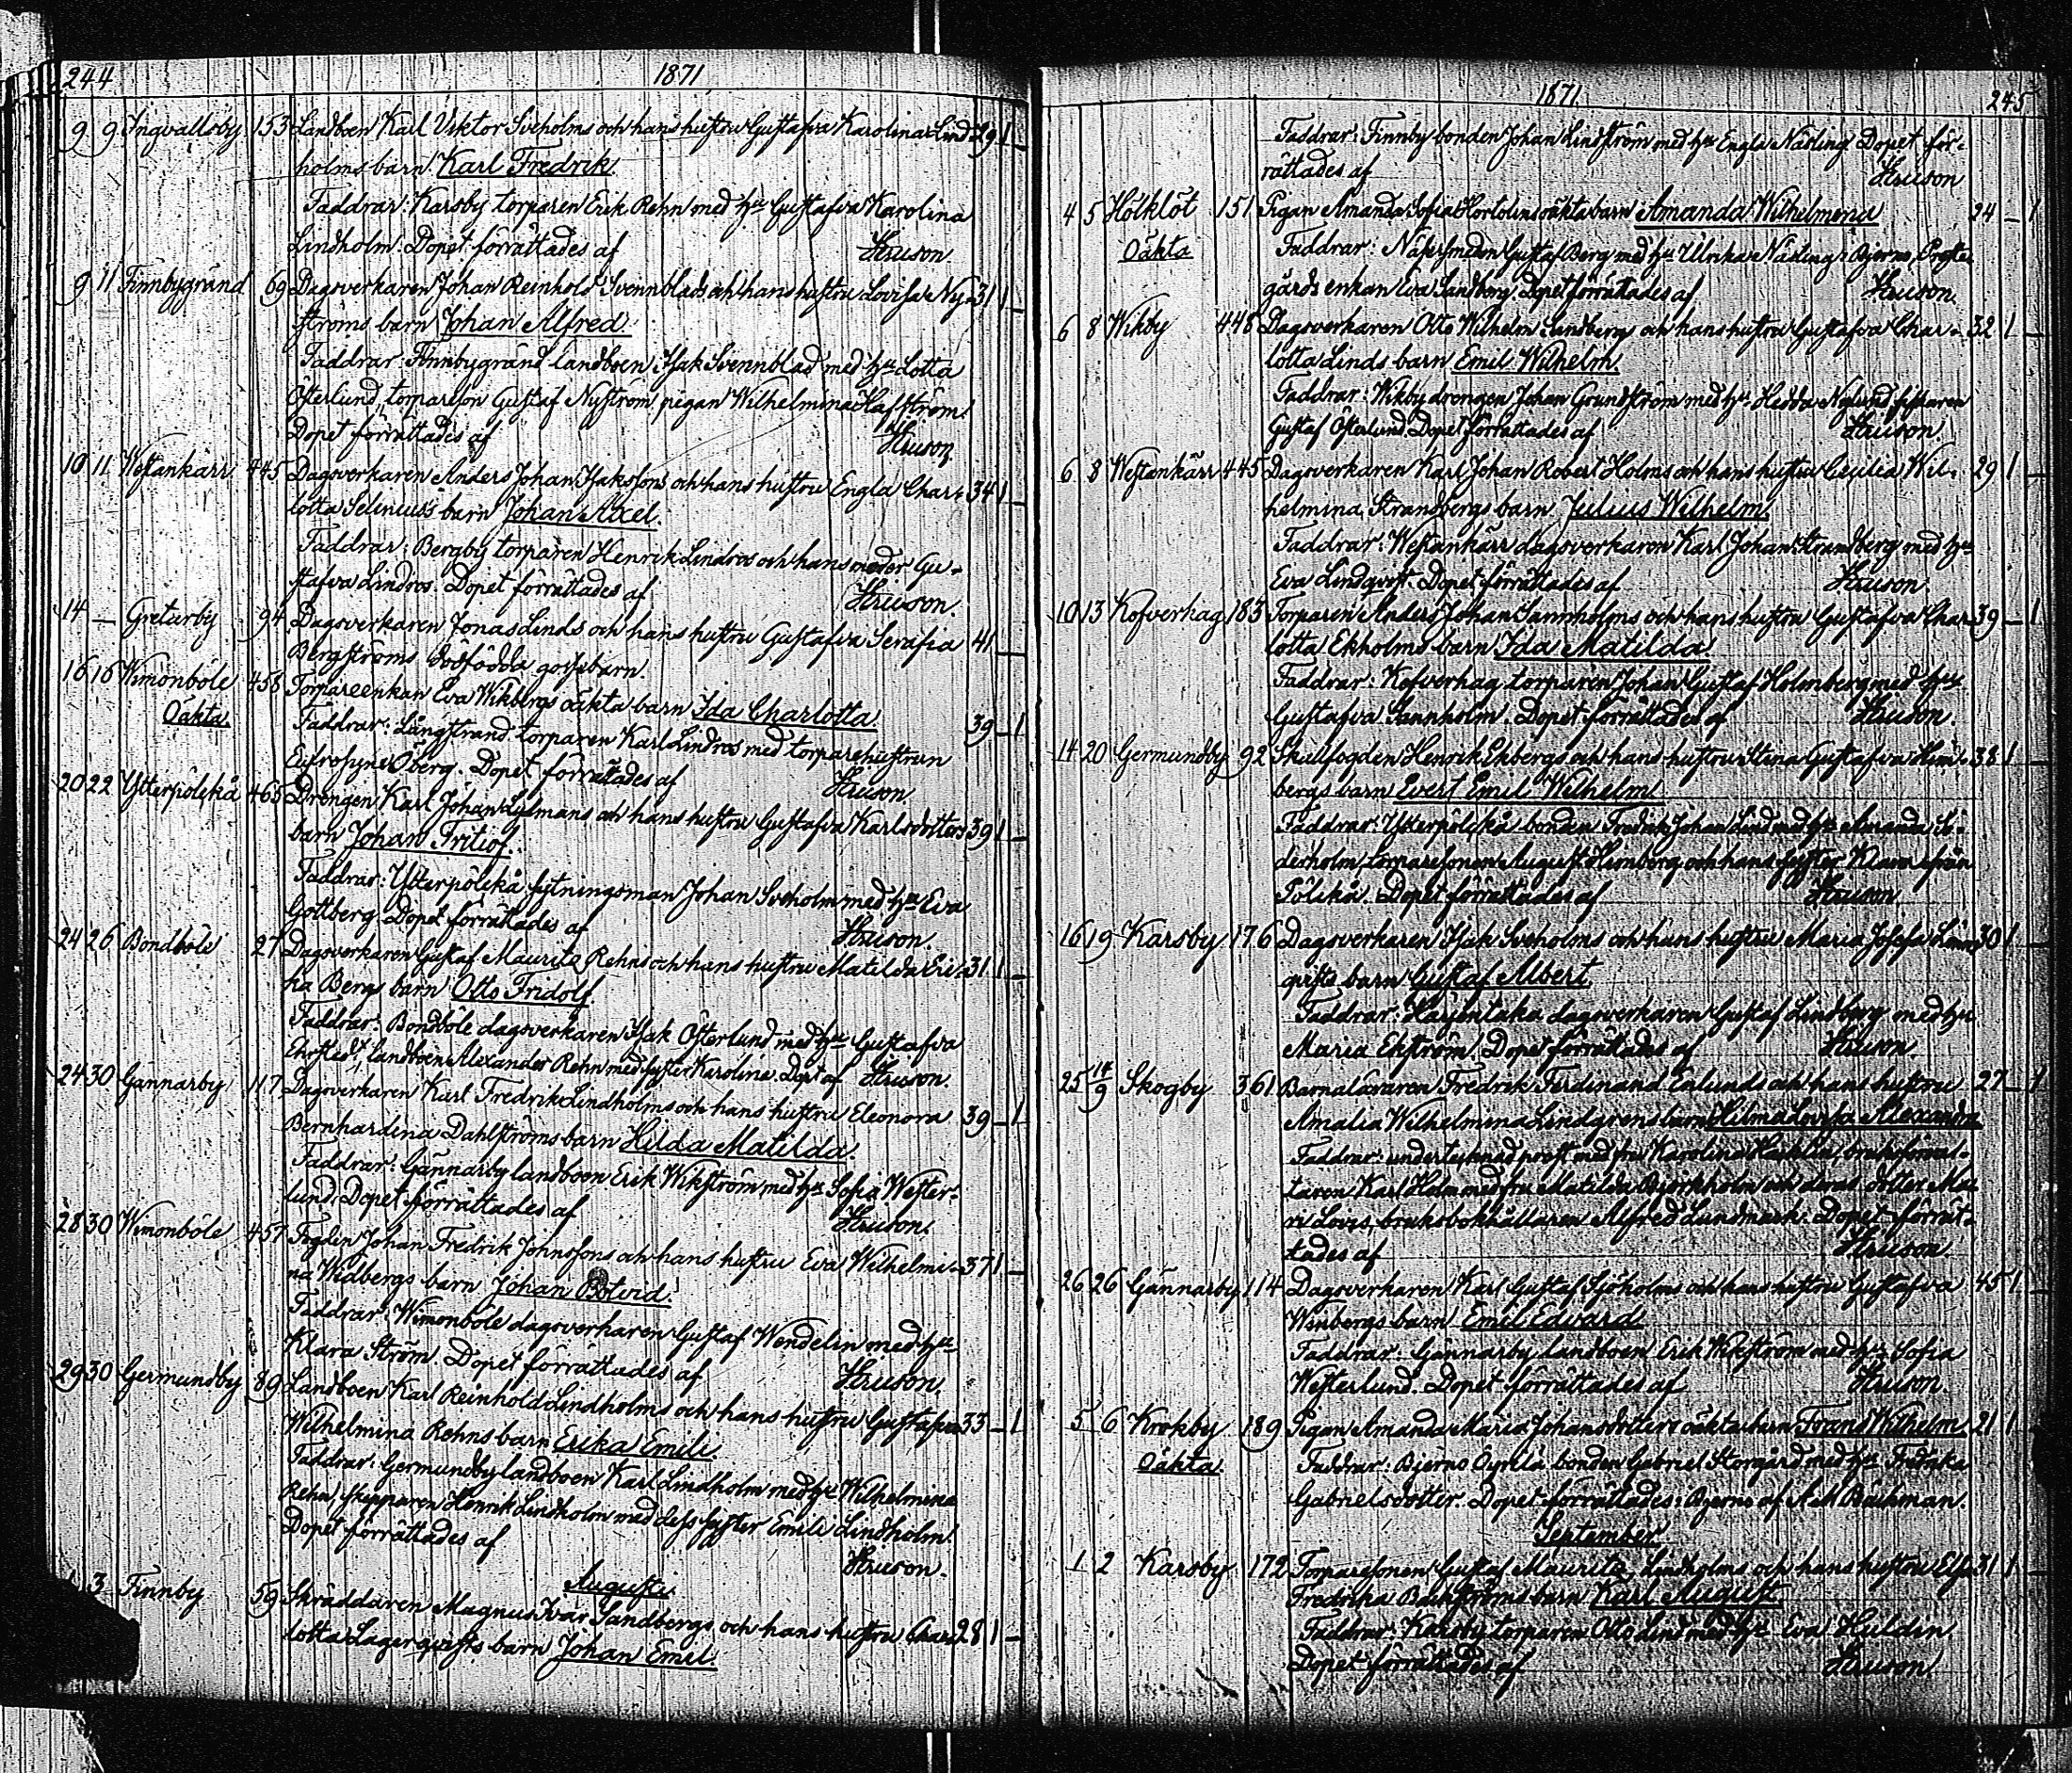 244 1871
9 9 Ingvallsby 153 Landboen Karl Viktor Sveholms och hans hustru Gustafva Karolina Lind- 29 1 —
holms barn Karl Fredrik.
Faddrar: Karsby torparen Erik Rehn med hu Gustafva Karolina
Lindholm. Dopet förrättades af Hruson.
9 11 Finnbygränd 69 Dagsverkaren Johan Reinhold Svennblads och hans hustru Lovisa Ny- 31 1 —
ströms barn Johan Alfred.
Faddrar: Finnbygränd landboen Isak Svennblad med hu Lotta
Österlund, torpareson Gustaf Nyström, pigan Wilhelmina Hafström.
Dopet förrättades af Hruson
10 11 Westankärr 445 Dagsverkaren Anders Johan Isaksons och hans hustru Engla Char- 34 1 —
lotta Selenius's barn Johan Axel.
Faddrar: Bergby torparen Henrik Lindros och hans moder Gu-
stafva Lindros. Dopet förrättades af Hruson.
14 — Gretarby 94 Dagsverkaren Jonas Linds och hans hustru Gustafva Serafia 41 —
Bergströms dödfödda gossebarn.
16 16 Wimonböle 458 Torpareenkan Eva Wikbergs oäkta barn Ida Charlotta 39 — 1
Oäkta. Faddrar: Långstrand torparen Karl Lindros med torparehustrun
Eufrosyne Öberg. Dopet förrättades af Hruson.
20 22 Ytterpölckå 465 Drengen Karl Johan Lilmans och hans hustru Gustafva Karlsdotters 39 1 —
barn Johan Fritiof.
Faddrar: Ytterpölckå sytningsman Johan Sveholm med hu Eva
Gottberg. Dopet förrättades af Hruson.
24 26 Bondböle 27 Dagsverkaren Gustaf Mauritz Rehns och hans hustru Matilda Eri- 31 1 —
ka Bergs barn Otto Fridolf.
Faddrar: Bondböle dagsverkaren Isak Österlund med hu Gustafva
Ehrstedt, landboen Alexander Rehn med syster Karolina. Dopt af Hruson.
24 30 Gannarby 117 Dagsverkaren Karl Fredrik Lindholms och hans hustru Eleonora 39 — 1
Bernhardina Dahlströms barn Hilda Matilda.
Faddrar: Gännarby landboen Erik Wikström med hu Sofia Wester-
lund. Dopet förrättades af Hruson.
28 30 Wimonböle 457 Johan Fredrik Johnssons och hans hustru Eva Wilhelmi- 37 1 —
na Widbergs barn Johan Botvid.
Faddrar: Wimonböle dagsverkaren Gustaf Wendelin med hu
Klara Ström. Dopet förrättades af Hruson.
29 30 Germundby 89 Landboen Karl Reinhold Lindholms och hans hustru Gustafva 33 — 1
Wilhelmina Rehns barn Erika Emili.
Faddrar: Germundby landboen Karl Lindholm med hu Wilhelmina
Rehn, skepparen Henrik Lindholm med dess syster Emili Lindholm.
Dopet förrättades af Hruson.
Augusti.
3 Finnby 59 Skräddaren Magnus Ivar Sandbergs och hans hustru Char- 28 1 —
lotta Lagerqvists barn Johan Emil.
1871 245
Faddrar: Finnby bonden Johan Lindström med hu Engla Näsling. Dopet för-
rättades af Hruson
4 5 Hölklöt 151 Pigan Amanda Sofia oäkta barn Amanda Wilhelmina 24 — 1
Oäkta Faddrar: Näse smeden Gustaf Berg med hu Ulrika Näsling, Bjerno Preste-
gårds enkan Eva Sandberg. Dopet förrättades af Hruson.
6 8 Wikby 448 Dagsverkaren Otto Wilhelm Sandbergs och hans hustru Gustafva Char- 32 1 —
lotta Linds barn Emil Wilhelm.
Faddrar: Wikby drengen Johan Grundström med hu Hedda Nylund, fiskaren
Gustaf Österlund. Dopet förrättades af Hruson.
6 8 Westankärr 445 Dagsverkaren Karl Johan Robert Holms och hans hustru Cecilia Wil- 29 1 —
helmina Strandbergs barn Julius Wilhelm.
Faddrar: Westankärr dagsverkaren Karl Johan Strandberg med hu
Eva Lindqvist. Dopet förrättades af Hruson
10 13 Kofverhag 183 Torparen Anders Johan Sannholms och hans hustru Gustafva Char- 39 — 1
lotta Ekholms barn Ida Matilda.
Faddrar: Kofverhag torparen Johan Gustaf Holmberg med hu
Gustafva Sannholm. Dopet förrättades af Hruson
14 20 Germundby 92 Skallfogden Henrik Ekbergs och hans hustru Stina Gustafva Heim- 38 1 —
bergs barn Evert Emil Wilhelm.
Faddrar: Ytterpölckå bonden Fredrik Johan Lind med hu Amanda Sö-
derholm, torparesonen August Heimberg och hans syster Klara från
Pölckå. Dopet förrättades af Hruson
16 19 Karsby 176 Dagsverkaren Isak Sveholms och hans hustru Maria Josefa Lin- 30 1 —
qvists barn Gustaf Albert.
Faddrar: Harjontaka dagsverkaren Gustaf Lindberg med hu
Maria Ekström. Dopet förrättades af Hruson
25 14/9 Skogby 361 Barnaläraren Fredrik Ferdinand Enlunds och hans hustru 27 — 1
Amalia Wilhelmina Lindgrens barn Hilma Lovisa Alexandra
Faddrar: undertecknad prost med fru Karolina, bruksförval-
taren Karl Holm med fru Matilda Björkholm och deras dotter Ma-
ri Lovis, bruksbokhållaren Alfred Lundmark. Dopet förrät-
tades af Hruson.
26 26 Gännarby 114 Dagsverkaren Karl Gustaf Sjöholms och hans hustru Gustafva 45 1 —
Winbergs barn Emil Edvard.
Faddrar: Gännarby landboen Erik Wikström med hu Sofia
Westerlund. Dopet förrättades af Hruson.
5 6 Krokby 189 Pigan Amanda Maria Johansdotters oäkta barn Frans Wilhelm 21 1
Oäkta. Faddrar: Bjerno bonden Gabriel Storgård med hu Fredrika
Gabrielsdotter. Dopet förrättades i Bjerno af Bäckman.
September
1 2 Karsby 172 Torparesonen Gustaf Mauritz Lindholms och hans hustru Elsa 31 1 —
Fredrika Backströms barn Karl August.
Faddrar: Karsby torparen Otto Lind med hu Eva Huldin
Dopet förrättades af Hruson